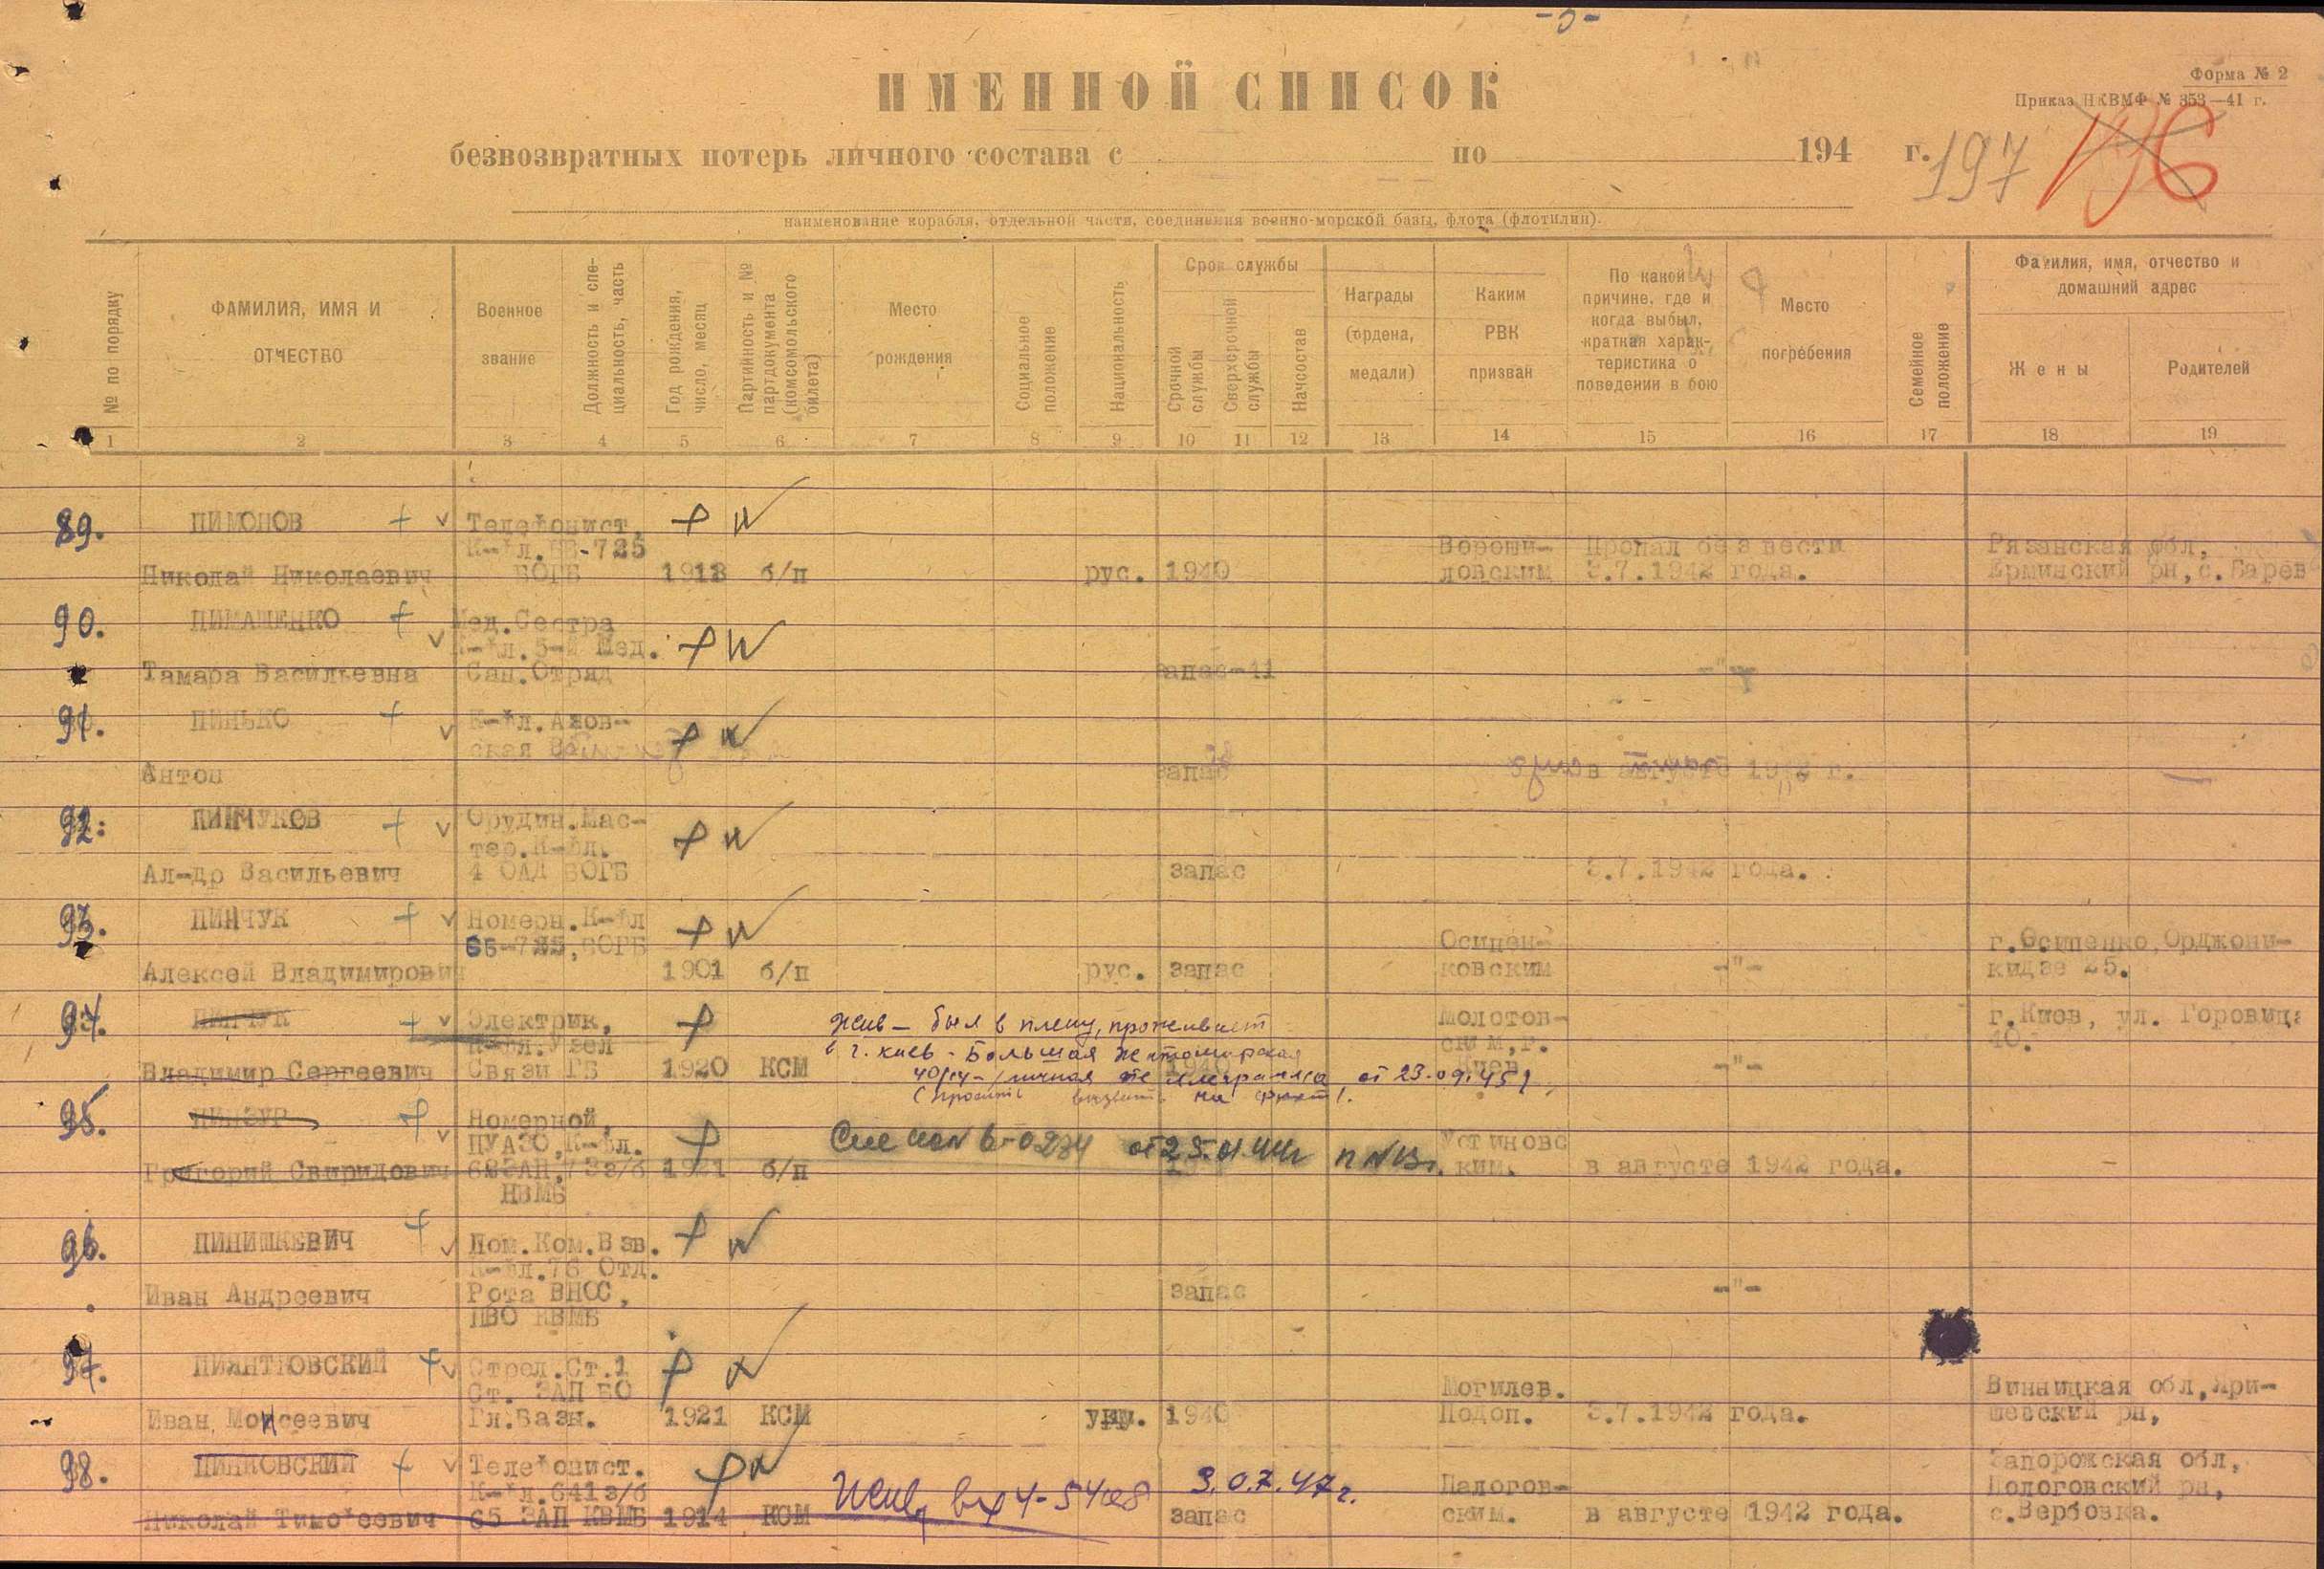 Форма № 2
Приказ НКВМФ № 353—41 г.
ИМЕННОЙ СПИСОК
197 196
безвозвратных потерь личного состава с по 194 г.
наименование корабля, отдельной части, соединения военно-морской базы, флота (флотилии).
№ по порядку
ФАМИЛИЯ, ИМЯ И ОТЧЕСТВО
Военное звание
Должность и специальность, часть
Год рождения, число, месяц
Партийность и № партдокумента (комсомольского билета)
Место рождения
Социальное положение
Национальность
Срок службы
Срочной службы
Сверхсрочной службы
Начсостав
Награды (ордена, медали)
Каким РВК призван
По какой причине, где и когда выбыл, краткая характеристика о поведении в бою
Место погребения
Семейное положение
Фамилия, имя, отчество и домашний адрес
Жены
Родителей
1 2 3 4 5 6 7 8 9 10 11 12 13 14 15 16 17 18 19
89. ПИМОНОВ + v Телефонист,
К-фл. ББ-725 Вороши- Пропал без вести Рязанская обл,
Николай Николаевич БОГБ 1913 б/п рус. 1940 ловским 3.7.1942 года. Ерминский рн, с.
90. ПИМАШЕНКО + Мед.Сестра
v К-фл. 5-й Мед.
Тамара Васильевна Сан.Отряд запас-11 -"-
91. ПИНЬКО + v К-фл. Азов-
ская
Антон запас в августе 1942 г. —
92. ПИНЧУКОВ + v Орудин.Мас-
тер.К-фл.
Ал-др Васильевич 4 ОАД БОГБ запас 3.7.1942 года.
93. ПИНЧУК + v Номерн. К-фл
ББ-725, БОГБ Осипен- г.Осипенко,Орджони-
Алексей Владимирович 1901 б/п рус. запас ковским -"- кидзе 25.
94. ПИНЧУК + v Электрик, Жив — был в плену, проживает Молотов- г.Киев, ул. Горовица
К-фл. Узел в г. киев - Большая Житомирская ским, г. 40.
Владимир Сергеевич Связи ГБ 1920 КСМ 1940 Киев -"-
личная телеграмма от 23.09.45
95. v Номерной,
ПУАЗО, К-фл. от 25.01.44г Устиновс
Григорий Свиридович з/б 1921 б/п ким. в августе 1942 года. —
96. ПИНИШКЕВИЧ + v Пом.Ком.Взв.
К-фл.76 Отд.
Иван Андреевич Рота ВНОС, запас -"-
ПВО КВМБ
97. ПИЯНТКОВСКИЙ + v Стрел.Ст.1
Ст. ЗАП БО Могилев. Винницкая обл, Яри-
Иван Моисеевич Гл.Базы. 1921 КСМ укр. 1940 Подоп. 3.7.1942 года. шевский рн,
98. ПИНКОВСКИЙ + v Телефонист. Запорожская обл,
К-фл.641з/б Жив, 3.07.47г. Палогов- Пологовский рн,
Николай Тимофеевич 65 ЗАП КВМБ 1914 КСМ запас ским. в августе 1942 года. с.Вербовка.